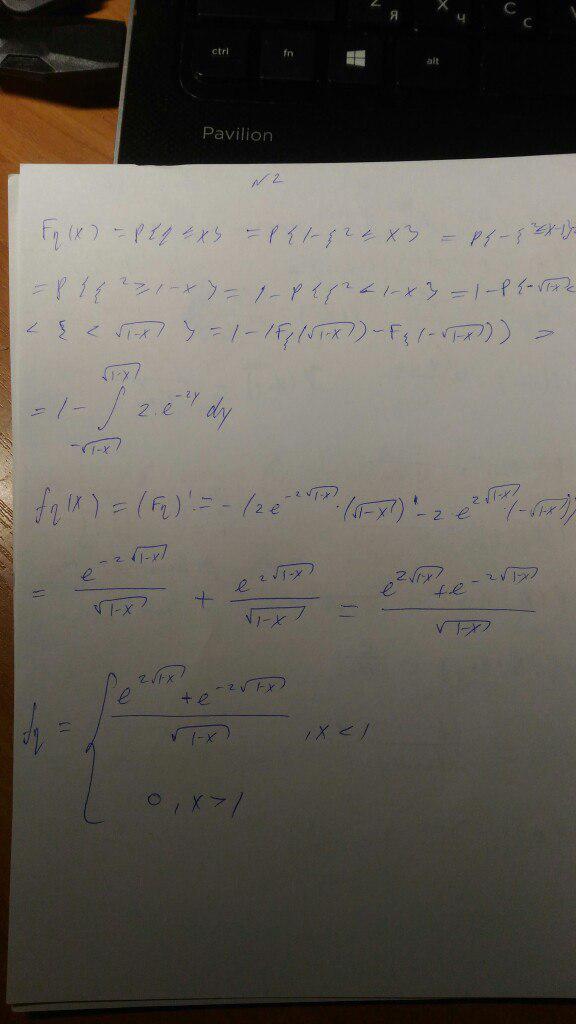 Z Я X Ч C C
ctrl fn alt
Pavilion
N2
Fη(x) = P{η ≤ x} = P{1-ξ² ≤ x} = P{-ξ² ≤ x-1} =
= P{ξ² ≥ 1-x} = 1-P{ξ² < 1-x} = 1-P{-√(1-x) <
< ξ < √(1-x)} = 1-(Fξ(√(1-x)) - Fξ(-√(1-x))) =
= 1 - ∫_{-√(1-x)}^{√(1-x)} 2·e^{-2y} dy
fη(x) = (Fη)' = -(2e^{-2√(1-x)}·(√(1-x))' - 2·e^{2√(1-x)}(-√(1-x))')
= e^{-2√(1-x)}/√(1-x) + e^{2√(1-x)}/√(1-x) = (e^{2√(1-x)} + e^{-2√(1-x)})/√(1-x)
fη = { (e^{2√(1-x)} + e^{-2√(1-x)})/√(1-x) , x < 1
0, x > 1